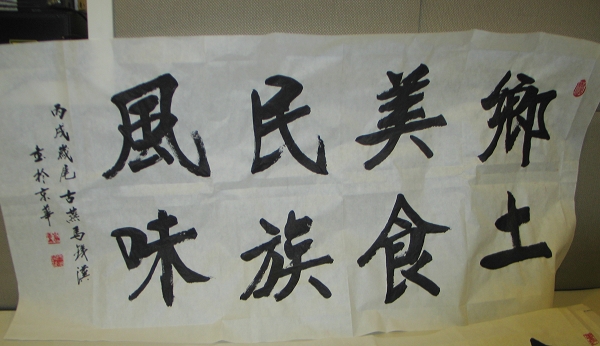 鄉土
美食
民族
風味
丙戌歲尾古燕馬成漢
書於京華